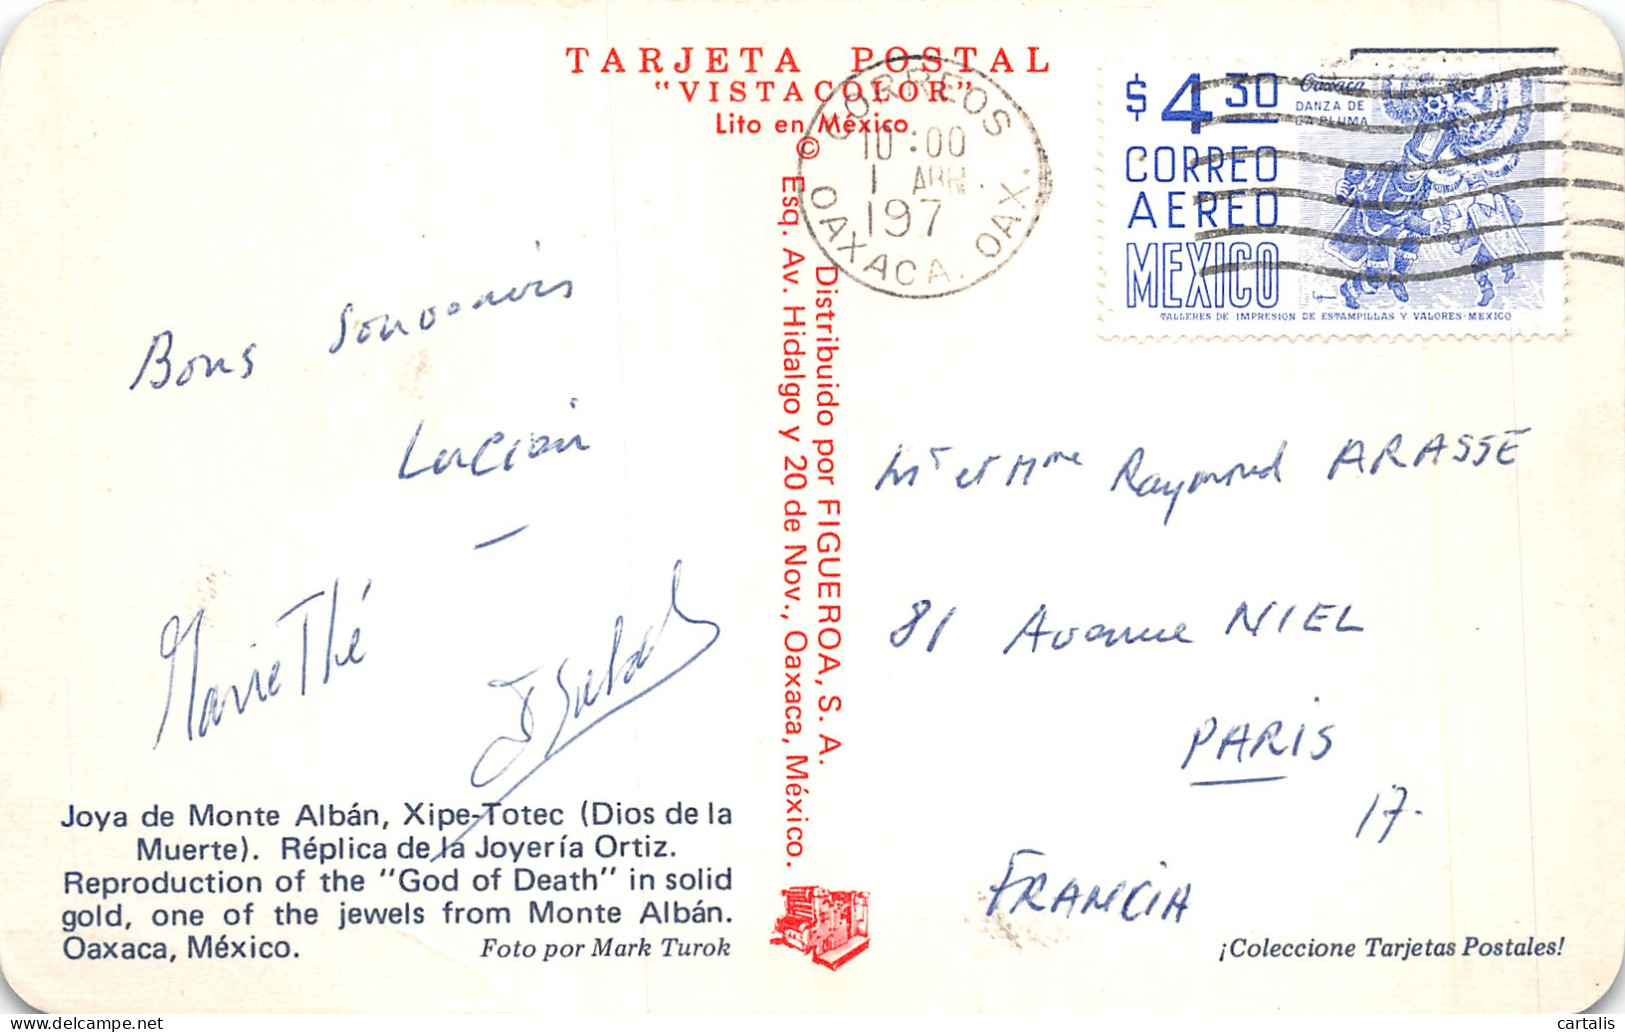 TARJETA POSTAL
"VISTACOLOR"
Lito en México
CORREOS
10:00
1 ABR.
197
OAXACA, OAX.
$4.30
CORREO
AEREO
MEXICO
Oaxaca
DANZA DE
LA PLUMA
TALLERES DE IMPRESION DE ESTAMPILLAS Y VALORES-MEXICO
Bons Souvenirs
Lucien
—
Marie Thé
© Esq. Av. Hidalgo y 20 de Nov., Oaxaca, México.
Distribuido por FIGUEROA, S. A.
Mr et Mme Raymond ARASSE
81 Avenue NIEL
PARIS
17.
FRANCIA
Joya de Monte Albán, Xipe-Totec (Dios de la
Muerte). Réplica de la Joyería Ortiz.
Reproduction of the "God of Death" in solid
gold, one of the jewels from Monte Albán.
Oaxaca, México.
Foto por Mark Turok
¡Coleccione Tarjetas Postales!
cartalis